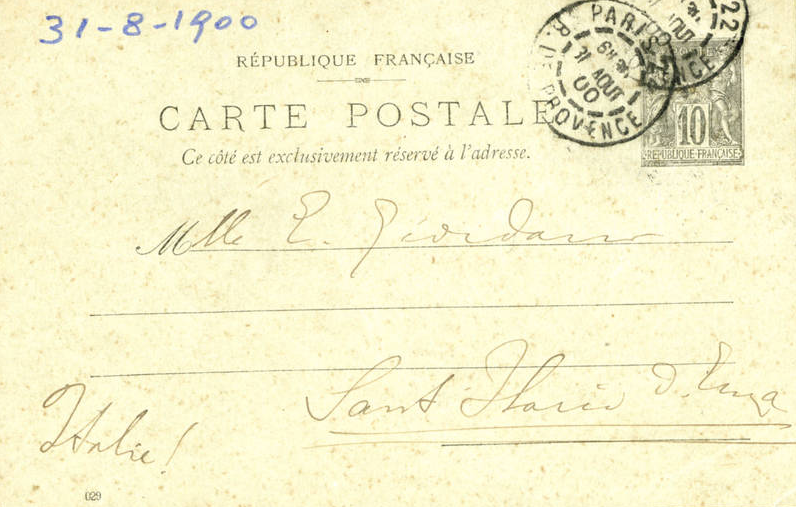 31-8-1900
22
PARIS
R. DE PROVENCE
31 AOUT
00
RÉPUBLIQUE FRANÇAISE
CARTE POSTALE
Ce côté est exclusivement réservé à l'adresse.
10
RÉPUBLIQUE FRANÇAISE
Mlle E. Giordano
Sant Ilario d'Enza
Italie!
029